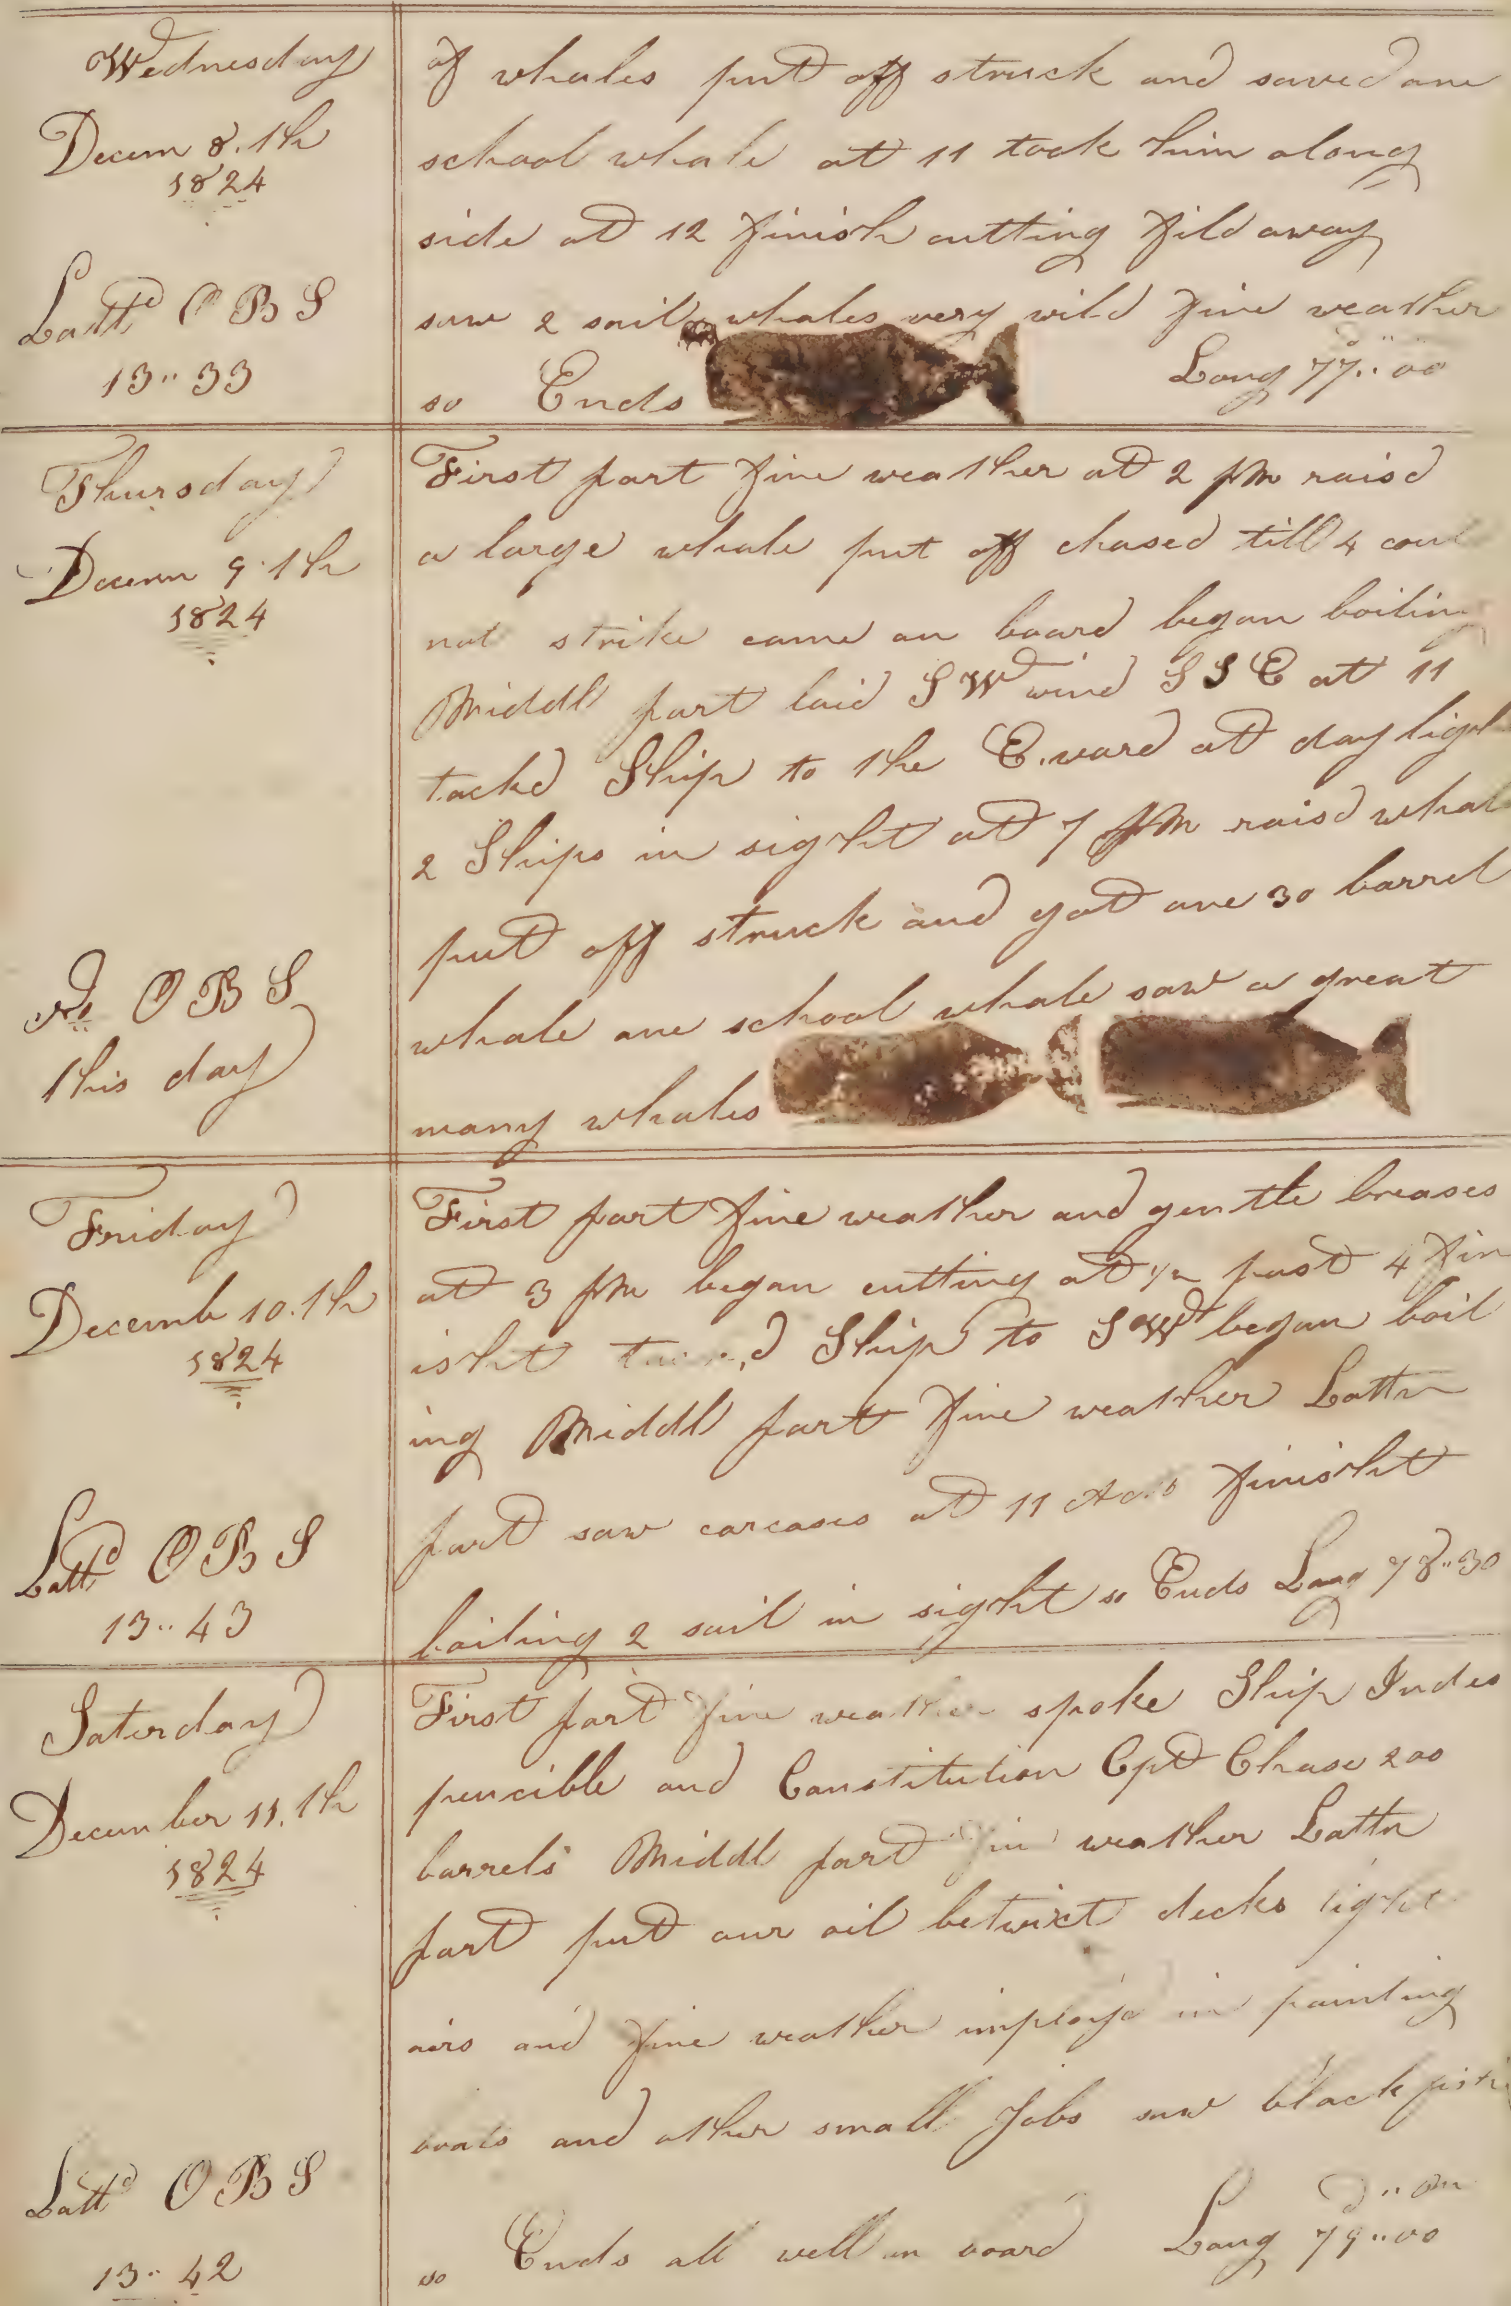 Wednesday
Decem 8.th
1824
Lattd OBS
13.. 33
of whales put off struck and saved one
school whale at 11 took him along
side at 12 finish cutting fild away
saw 2 sail whales very wild fine weather
so Ends Long 77..00
Thursday
Decem 9.th
1824
No OBS
this day
First part fine weather at 2 PM raisd
a large whale put off chased till 4 coul
not strike came on board began boiling
Middl part laid SW wind SSE at 11
tackd Ship to the E.ward at day light
2 Ships in sight at 7 PM raisd whal
put off struck and got one 30 barrel
whale one school whale saw a great
many whales
Friday
Decemb 10.th
1824
Lattd OBS
13.. 43
First part fine weather and gentle breases
at 3 PM began cutting at 1/2 past 4 fin
isht Ship to SWd began boil
ing Middl part fine weather Lattr
part saw carcases at 11 finisht
boiling 2 sail in sight so Ends Long 78..30
Saterday
December 11.th
1824
Lattd OBS
13.. 42
First part fine weather spoke Ship Indes
pencible and Constitution Cpt Chase 200
barrels Middl part fin weather Lattr
part put our oil betwixt decks light
airs and fine weather imployd in painting
boats and other small Jobs saw black fish
so Ends all well on board Long 79..00